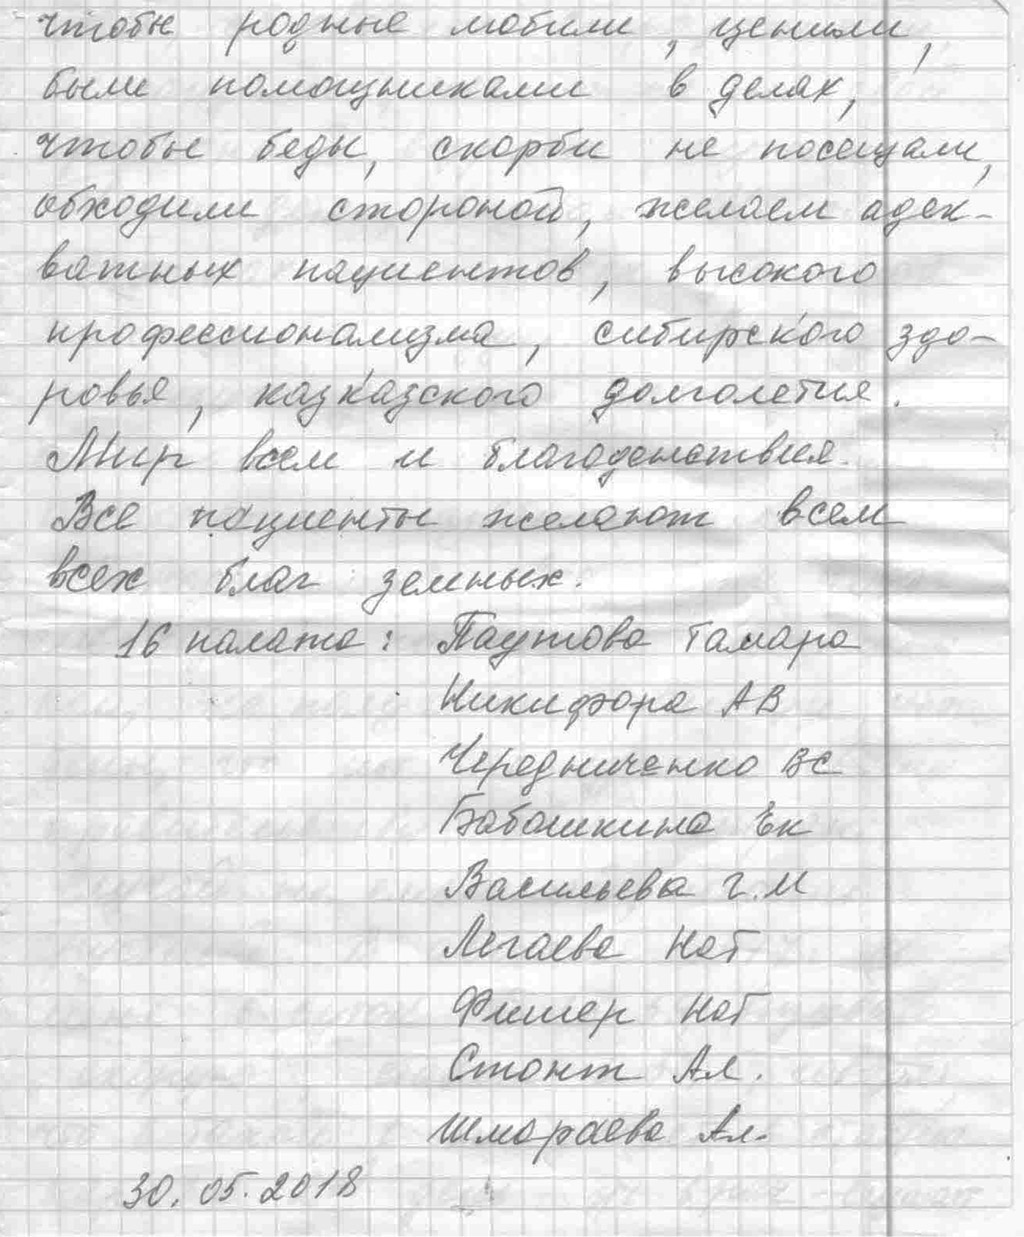 чтобы родные любили, ценили,
были помощниками в делах,
чтобы беды, скорби не посещали,
обходили стороной, желаем адек-
ватных пациентов, высокого
профессионализма, сибирского здо-
ровья, кавказского долголетия.
Мир всем и благоденствия.
Все пациенты желают всем
всех благ земных.
16 палата: Паутова Тамара
Никифора АВ
Чередниченко ВС
Бабошкина Ек
Васильева Г.М
Легаева Нат
Фишер Нат
Стонт Ал.
Шмараева Ал.
30.05.2018